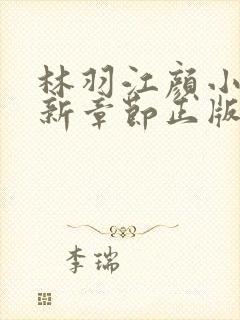 林羽江颜小
新章节正版
李瑞